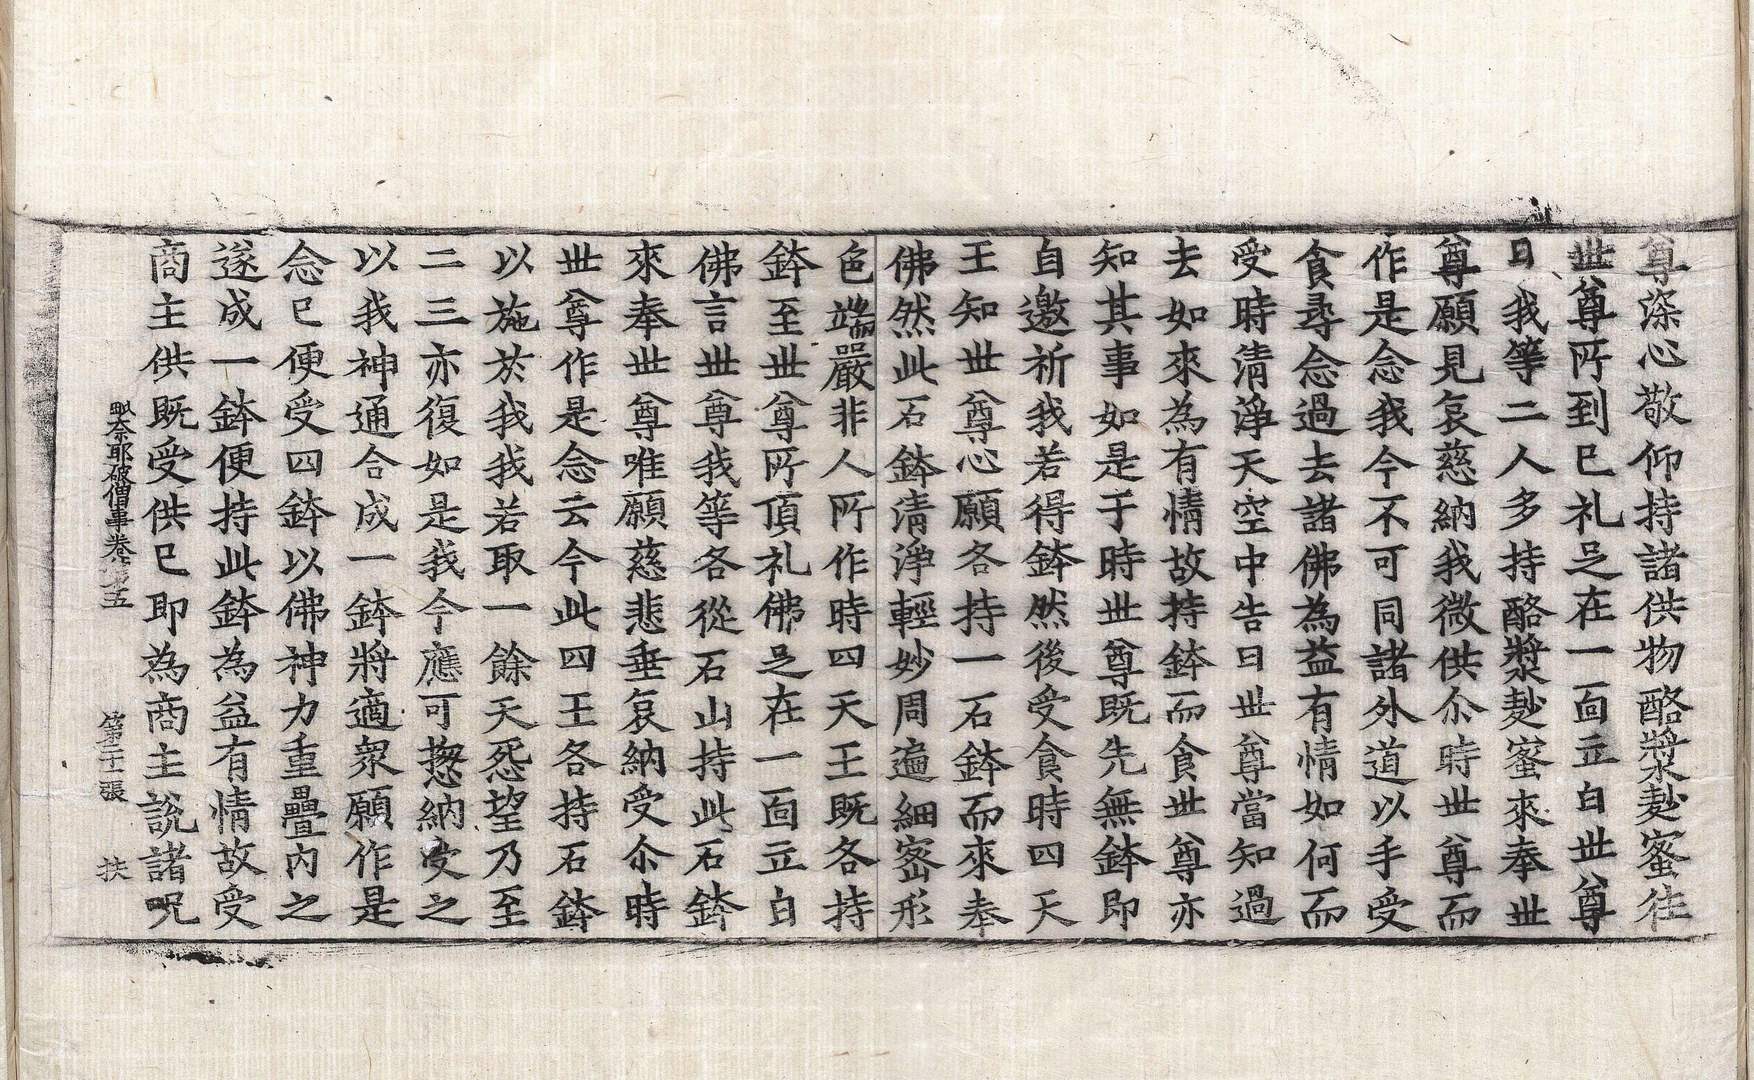 尊深心敬仰持諸供物酪漿麨蜜往
世尊所到已礼足在一面立白世尊
曰我等二人多持酪漿麨蜜來奉世
尊願見哀慈納我微供尒時世尊而
作是念我今不可同諸外道以手受
食尋念過去諸佛為益有情如何而
受時清淨天空中告曰世尊當知過
去如來為有情故持鉢而食世尊亦
知其事如是于時世尊既先無鉢即
自邀祈我若得鉢然後受食時四天
王知世尊心願各持一石鉢而來奉
佛然此石鉢清淨輕妙周遍細密形
色端嚴非人所作時四天王既各持
鉢至世尊所頂礼佛足在一面立白
佛言世尊我等各從石山持此石鉢
來奉世尊唯願慈悲垂哀納受尒時
世尊作是念云今此四王各持石鉢
以施於我我若取一餘天怨望乃至
二三亦復如是我今應可揔納受之
以我神通合成一鉢將適衆願作是
念已便受四鉢以佛神力重疊內之
遂成一鉢便持此鉢為益有情故受
商主供既受供已即為商主說諸呪
毗奈耶破僧事卷第五 第二十一張 扶